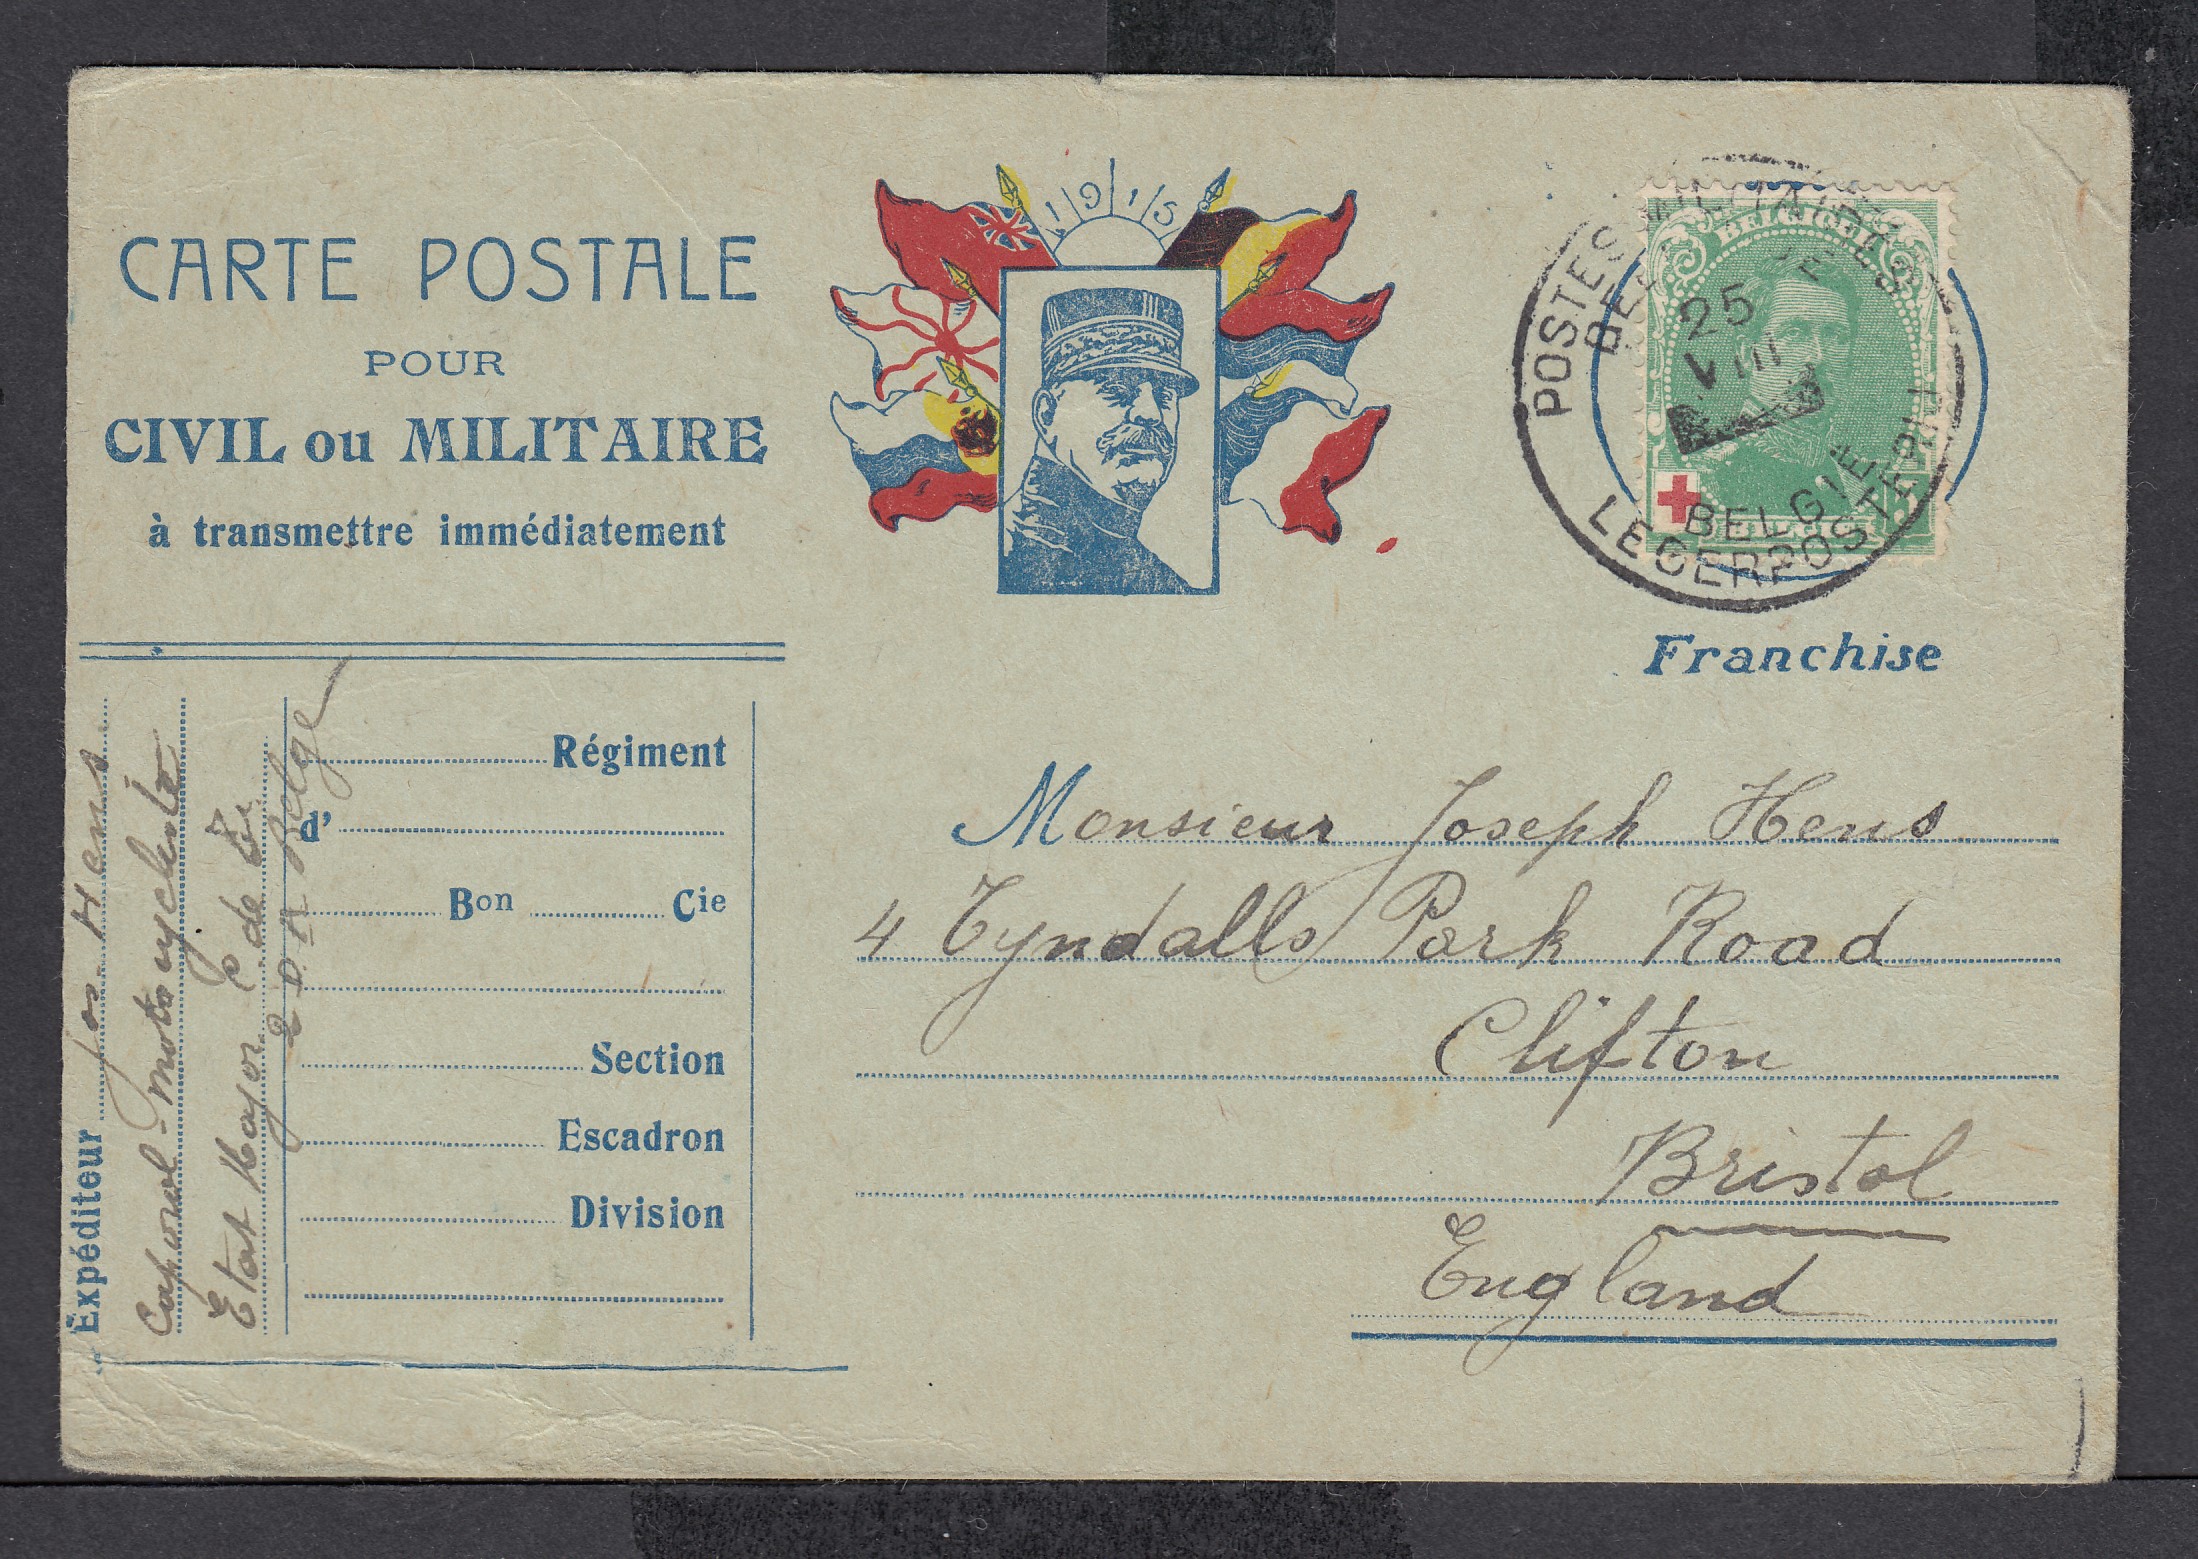 CARTE POSTALE
POUR
CIVIL ou MILITAIRE
à transmettre immédiatement
1915
POSTES MILITAIRES
BELGIQUE
25
VIII
BELGIË
LEGERPOSTERIJ
Franchise
Régiment
d'
Bon Cie
Section
Escadron
Division
Expéditeur Jos. Hens
Caporal-motocycliste
Etat Major
Belge
Monsieur Joseph Hens
4 Tyndalls Park Road
Clifton
Bristol
England